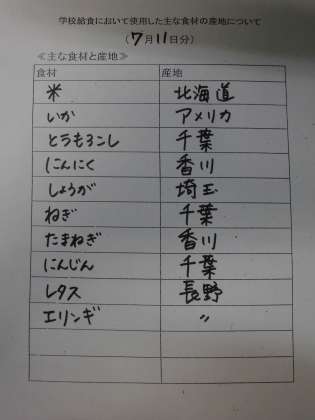 学校給食において使用した主な食材の産地について
(7月11日分)
≪主な食材と産地≫
食材 産地
米 北海道
いか アメリカ
とうもろこし 千葉
にんにく 香川
しょうが 埼玉
ねぎ 千葉
たまねぎ 香川
にんじん 千葉
レタス 長野
エリンギ 〃